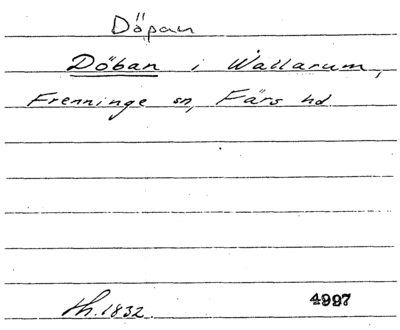 Döpan
Döban i Wallarum,
Frenninge sn, Färs hd
th. 1832. 4997